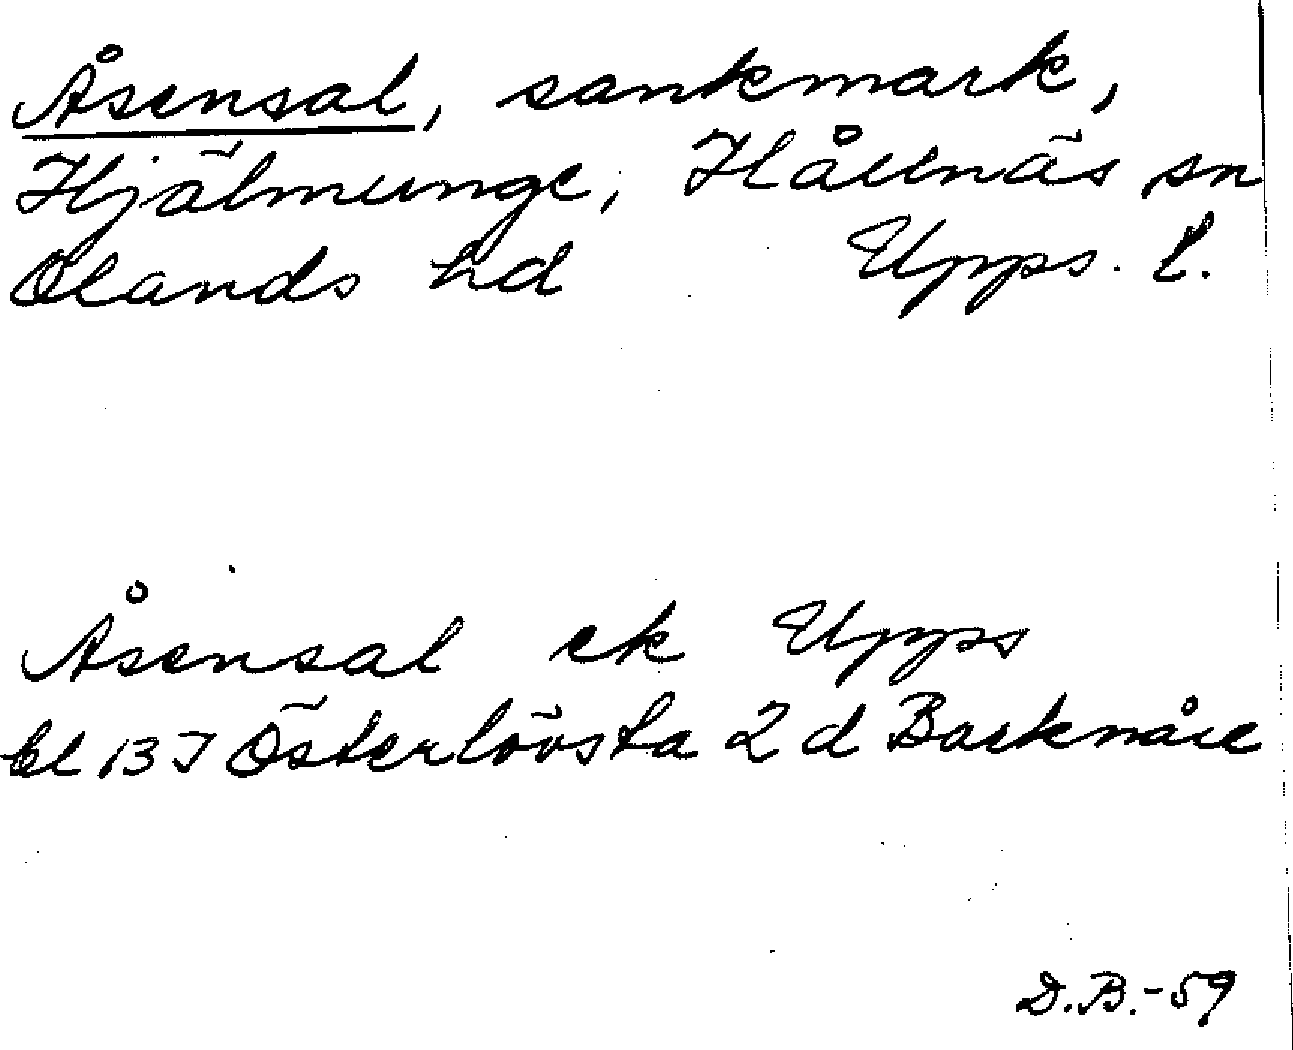 Åsensal, sankmark,
Hjälmunge, Hållnäs sn
Olands hd Upps. l.
Åsensal ek Upps
bl 13 I Österlövsta 2 d Barknåre
D.B.-59